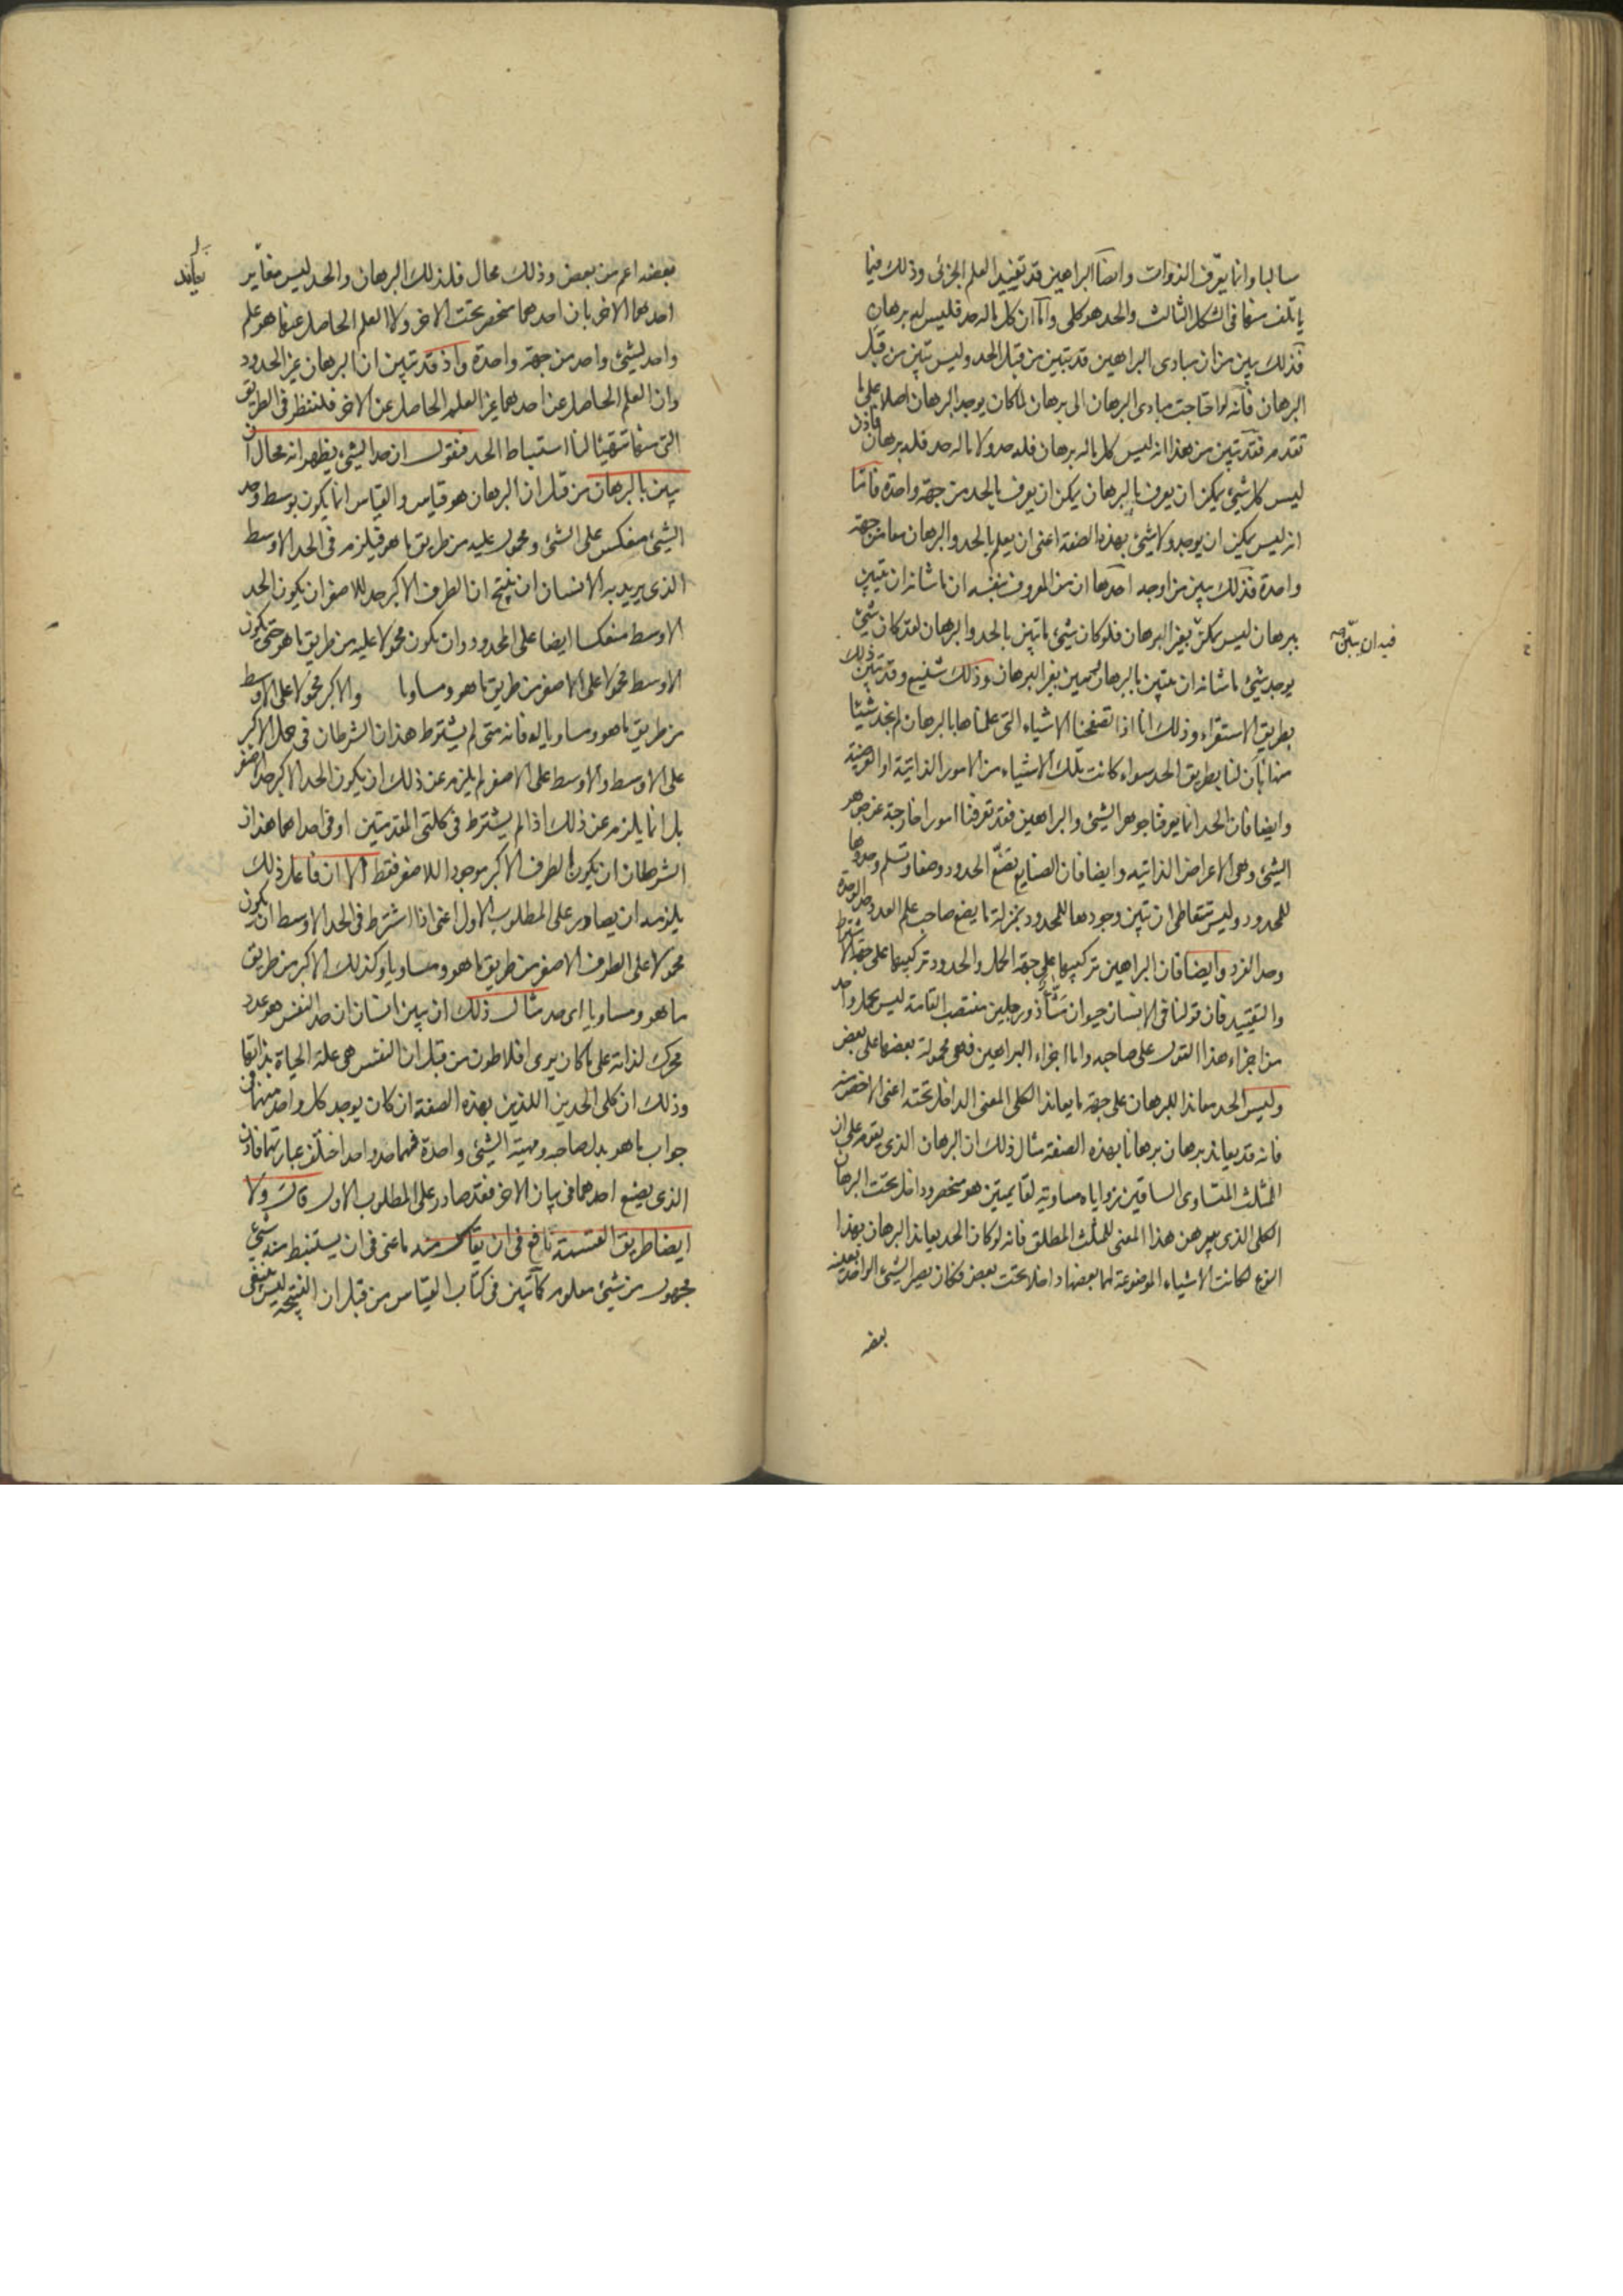 سالبا وانما يعرف الذوات وايضا البراهين قد تفيد العلم الجزئى وذلك فيما
ياتلف منها فى الشكل الثالث والحد هو كلى واما ان كل ماله حد فليس له برهان
فذلك يبين من ان مبادى البراهين قد تتبين من قبل الحد وليس تبين من قبل
البرهان فانه لو احتاجت مبادى البرهان الى برهان لما كان يوجد البرهان اصلا على ما
تقدم فقد تبين من هذا انه ليس كل ماله برهان فله حد ولا ماله حد فله برهان فاذن
ليس كل شئ يمكن ان يعرف بالبرهان يمكن ان يعرف بالحد من جهة واحدة فاما
انه ليس يمكن ان يوجد ولا شئ بهذه الصفة اعنى ان يعلم بالحد والبرهان معا من جهة
واحدة فذلك يبين من اوجه احدها ان من المعروف بنفسه ان ما شانه ان يتبين
ببرهان ليس يمكن بغير البرهان فلو كان شئ ما تبين بالحد والبرهان لقد كان شئ
فيه ان يتبين صح
يوجد شئ ما شانه ان يتبين بالبرهان يتبين بغير البرهان وذلك شنيع وقد تبين ذلك
بطريق الاستقراء وذلك انا اذا تصفحنا الاشياء التى علمناها بالبرهان لم نجد شيئا
منها بان لنا بطريق الحد سواء كانت تلك الاشياء من الامور الذاتية او العرضية
وايضا فان الحد انما يعرفنا جوهر الشئ والبراهين فقد تعرفنا امورا خارجة عن جوهر
الشئ وهى الاعراض الذاتيه وايضا فان الصنايع تضع الحدود وضعا وتسلم وجودها
للمحدود وليس تتعاطى ان تبين وجودها للمحدود بمنزلة ما يضع صاحب علم العدد حد الوحدة
وحد الفرد وايضا فان البراهين تركيبها على جهة الحمل والحدود تركيبها على جهة الاشتراط
والتقييد فان قولنا فى الانسان حيوان مشاء ذو رجلين منتصب القامة ليس يحمل واحد
من اجزاء هذا القول على صاحبه واما اجزاء البراهين فهى محمولة بعضها على بعض
وليس الحد معاندا للبرهان على جهة ما يعاند الكلى المعنى الداخل تحته اعنى الاخص منه
فانه قد يعاند برهان برهانا بهذه الصفة مثال ذلك ان البرهان الذى يقوم على ان
المثلث المتساوى الساقين زواياه مساوية لقايمتين هو منحصر وداخل تحت البرهان
الكلى الذى يبرهن هذا المعنى للمثلث المطلق فانه لو كان الحد يعاند البرهان بهذا
النوع لكانت الاشياء الموضوعة لهما بعضها داخلا تحت بعض فكان يصير الشئ الواحد بعينه
بعضه
بعضه اعم من بعض وذلك محال فلذلك البرهان والحد ليس مغاير
يعاند
احدهما الاخر بان احدهما منحصر تحت الاخر ولا العلم الحاصل عنهما هو علم
واحد لشئ واحد من جهة واحدة واذ قد تبين ان البرهان غير الحدود
وان العلم الحاصل عن احدهما غير العلم الحاصل عن الاخر فلننظر فى الطريق
التى منها تتهيأ لنا استنباط الحد فنقول ان حد الشئ يظهر انه محال ان
يبين بالبرهان من قبل ان البرهان هو قياس والقياس انما يكون بوسط وحد
الشئ منعكس على الشئ ومحمول عليه من طريق ما هو فيلزم فى الحد الاوسط
الذى يريد به الانسان ان ينتج ان الطرف الاكبر حد للاصغر ان يكون الحد
الاوسط منعكسا ايضا على المحدود وان يكون محمولا عليه من طريق ما هو حتى يكون
الاوسط محمولا على الاصغر من طريق ما هو ومساويا والاكبر محمولا على الاوسط
من طريق ما هو ومساويا له فانه متى لم يشترط هذان الشرطان فى حمل الاكبر
على الاوسط والاوسط على الاصغر لم يلزم عن ذلك ان يكون الحد الاكبر حدا للاصغر
بل انما يلزم عن ذلك اذا لم يشترط فى كلتى المقدمتين او فى احداهما هذان
الشرطان ان يكون الطرف الاكبر موجودا للاصغر فقط الا ان فاعل ذلك
يلزمه ان يصادر على المطلوب الاول اعنى اذا اشترط فى الحد الاوسط ان يكون
محمولا على الطرف الاصغر من طريق ما هو ومساويا وكذلك الاكبر من طريق
ما هو ومساويا اى حد مثال ذلك ان يبين انسان ان حد النفس هو عدد
محرك لذاته على ما كان يرى افلاطون من قبل ان النفس هى علة الحياة بذاتها
وذلك ان كلى الحدين اللذين بهذه الصفة ان كان يوجد كل واحد منهما فى
جواب ما هو بدل صاحبه ومهية الشئ واحدة فهما حد واحد اختلف عبارتهما فاذن
الذى يضع احدهما فى بيان الاخر فقد صادر على المطلوب الاول قال ولا
ايضا طريق القسمة نافع فى ان يقاس منه ما عنى فى ان يستنبط منه شئ
مجهول من شئ معلوم كما تبين فى كتاب القياس من قبل ان النتيجة ليس ينبغى